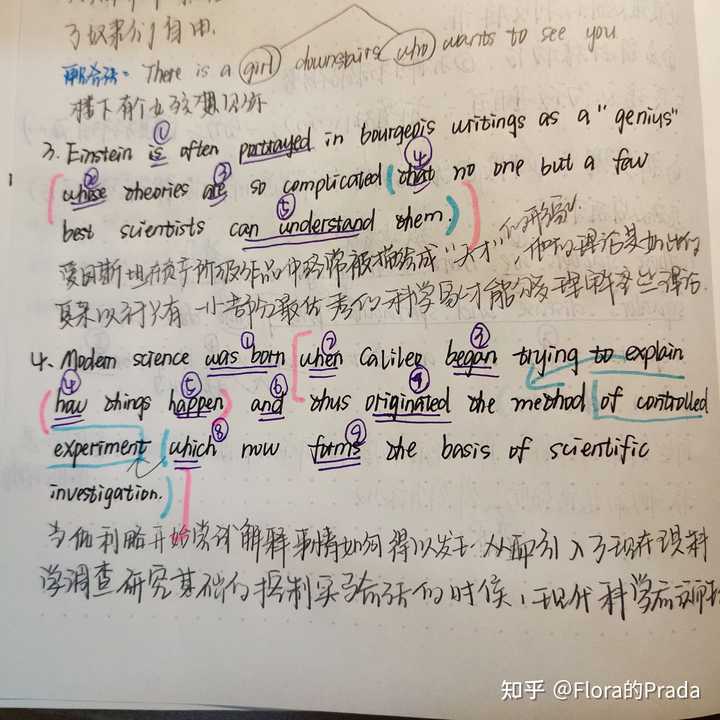 了奴隶们自由.
There is a girl downstairs who wants to see you
楼下有个女孩想见你
3. Einstein is often portrayed in bourgeois writings as a "genius"
whose theories are so complicated (that no one but a few
best scientists can understand them.)
爱因斯坦在资产阶级作品中经常被描绘成"天才"的形象,他的理论是如此的
复杂以
部分最优秀的科学家才能够理解这些理论.
4. Modern science was born when Galileo began trying to explain
(how things happen) and thus originated the method of controlled
experiment (which now forms the basis of scientific
investigation.)
当伽利略开始尝试解释事情如何得以发生从而引入了现在
科学调查研究基础的控制实验方法的时候,现代科学
知乎 @Flora的Prada